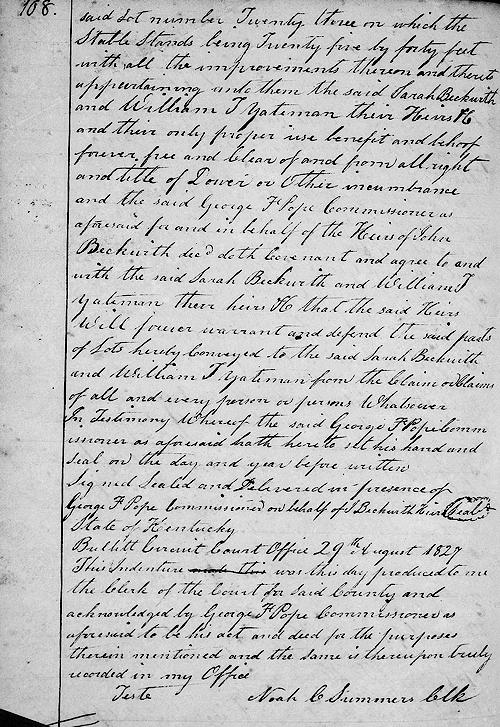 108.
said Lot number Twenty three on which the
Stable Stands being Twenty five by forty feet
with all the improvements thereon and thereto
appertaining unto them the said Sarah Beckwith
and William T Yateman their Heirs &c
and their only proper use benefit and behoof
forever, free and Clear of and from all right
and title of Dower or Other incumbrance
and the said George F Pope Commissioner as
aforesaid for and in behalf of the Heirs of John
Beckwith decd doth Covenant and agree to and
with the said Sarah Beckwith and William T
Yateman their heirs &c that the said Heirs
Will forever warrant and defend the said parts
of Lots hereby Conveyed to the said Sarah Beckwith
and William T Yateman from the Claim or Claims
of all and every person or persons Whatsoever
In Testimony Whereof the said George F Pope Comm
issioner as aforesaid hath hereto set his hand and
Seal on the day and year before written
Signed Sealed and Delivered in presence of
George F Pope Commissioner on behalf of J Beckwith Heirs Seal
State of Kentucky
Bullitt Circuit Court Office 29th August 1827
This Indenture made this was this day produced to me
the Clerk of the Court for Said County and
acknowledged by George F Pope Commissioner as
aforesaid to be his act and deed for the purposes
therein mentioned and the same is thereupon truly
recorded in my Office
Teste Noah C Summers Clk